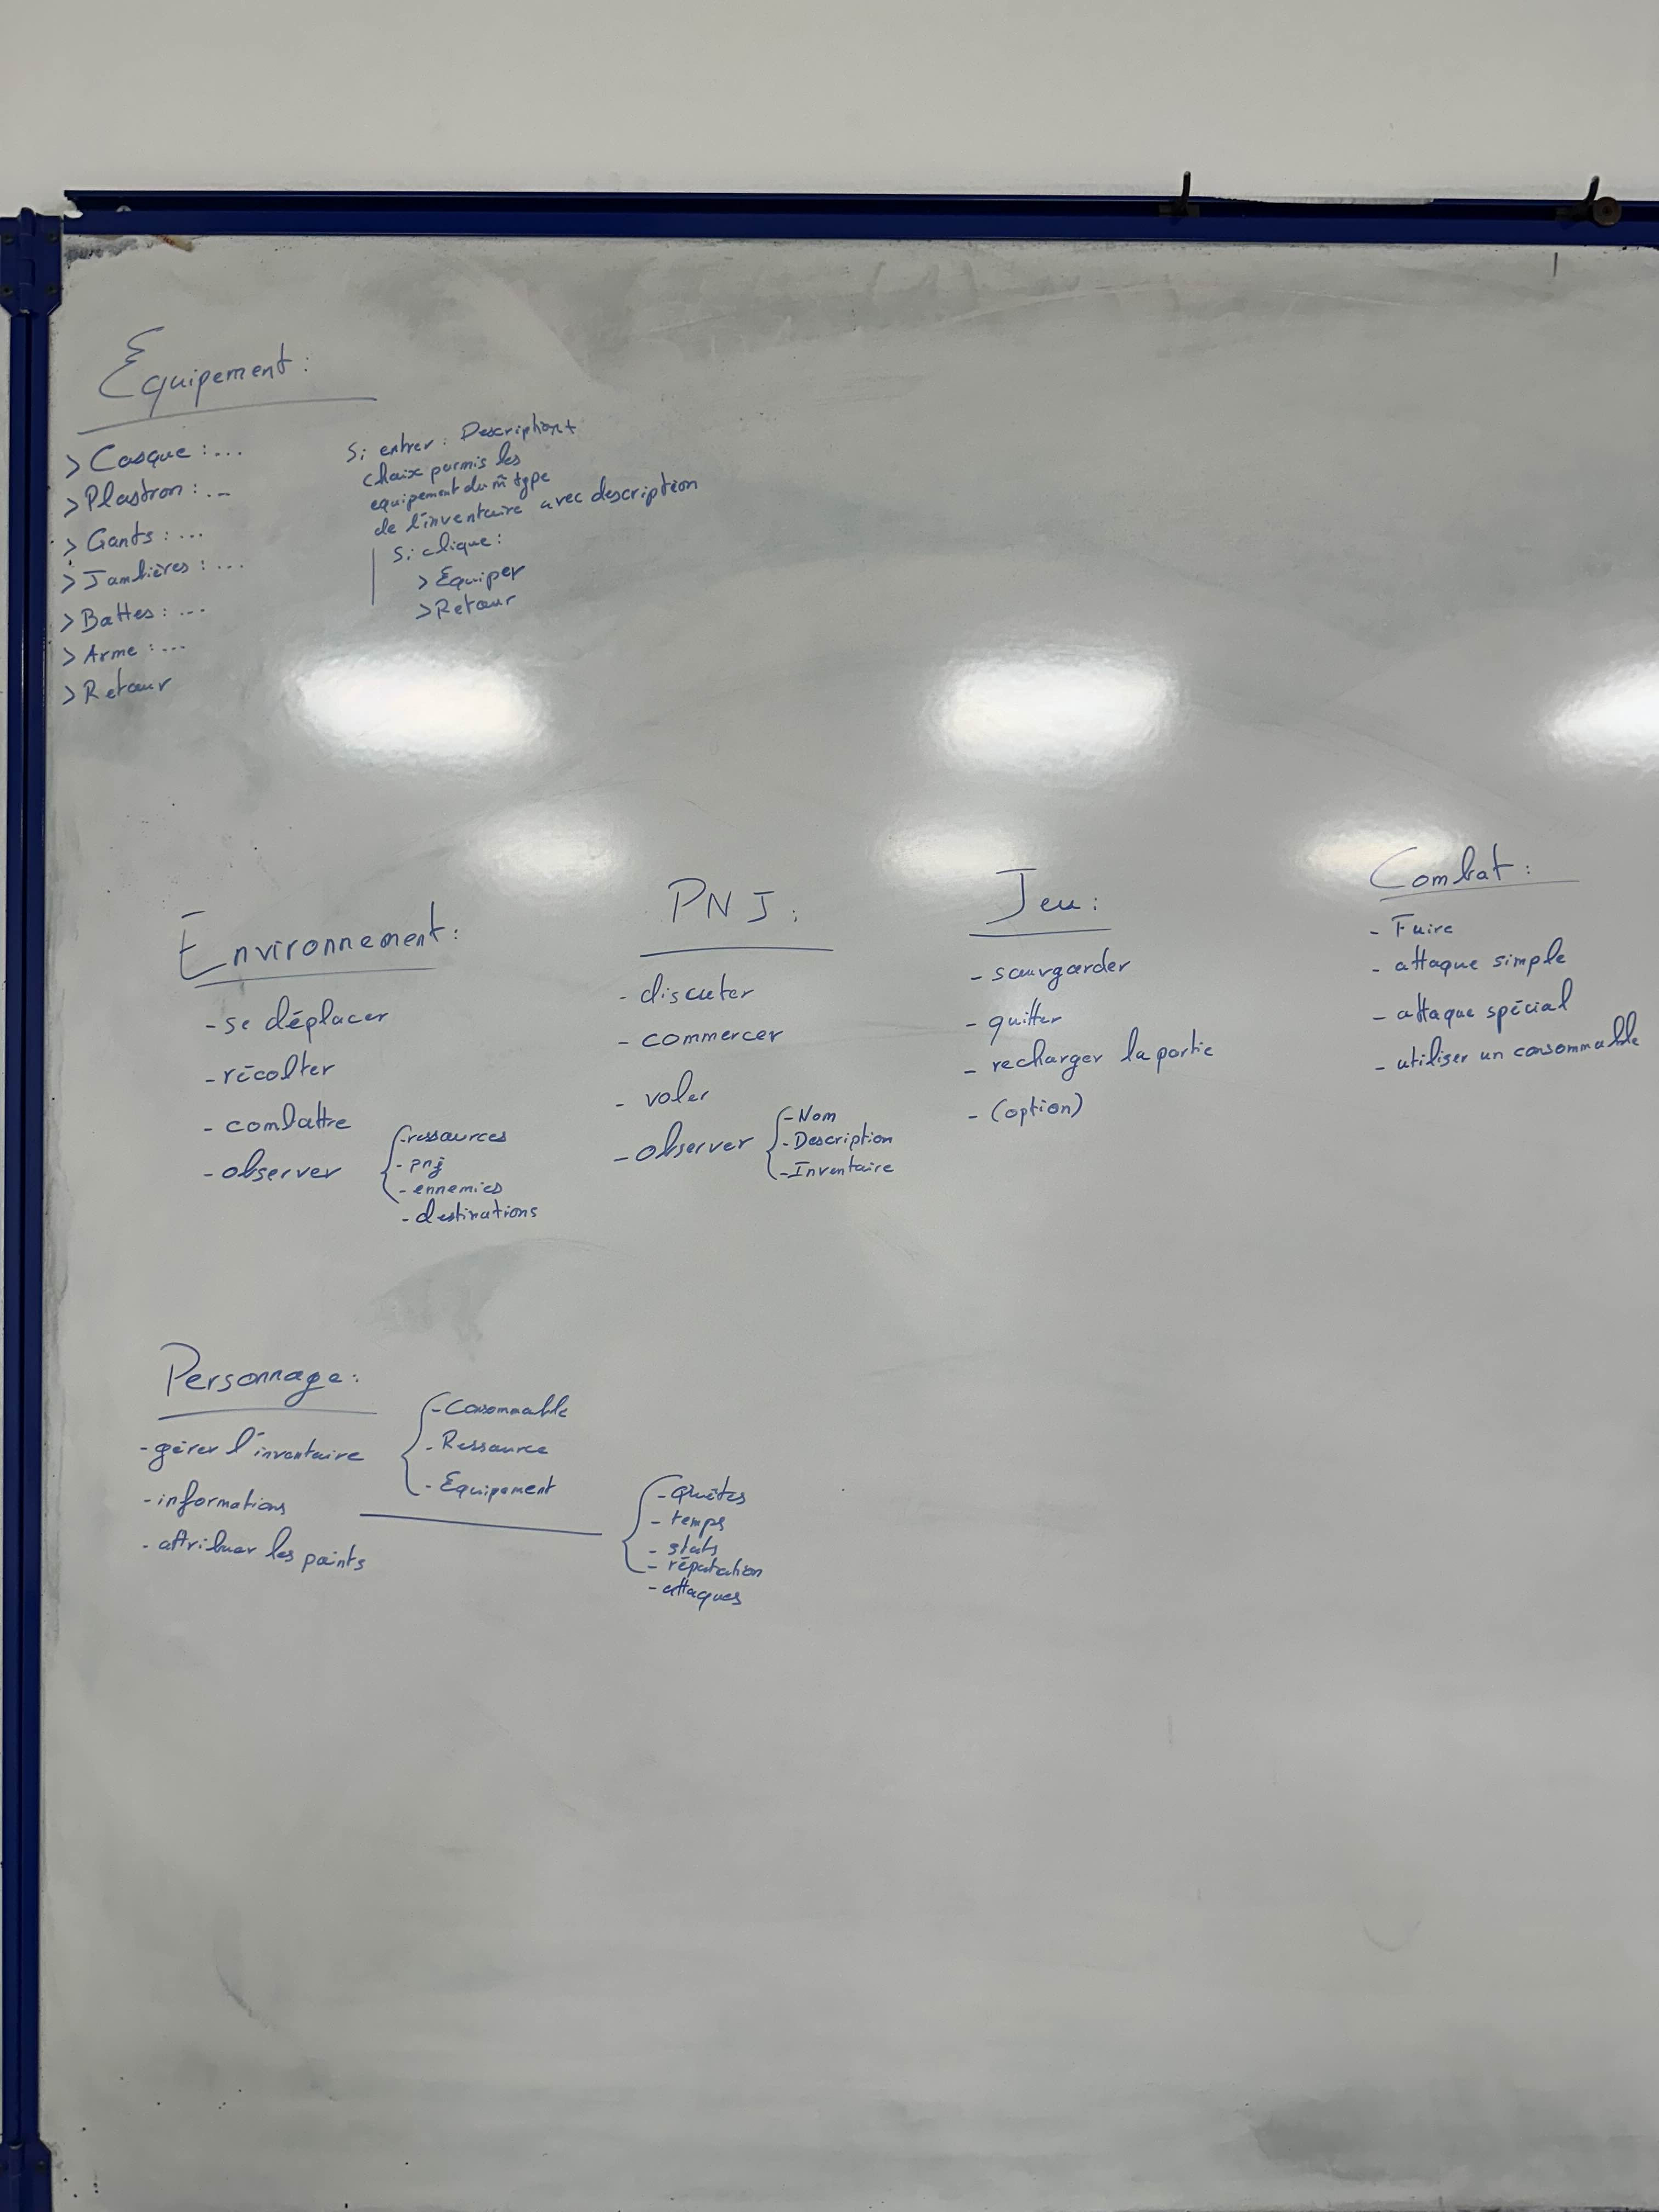 Equipement :
> Casque : ...
> Plastron : ...
> Gants : ...
> Jambières : ...
> Bottes : ...
> Arme : ...
> Retour
Si entrer : Description +
choix parmis les
equipement du m̂ type
de l'inventaire avec description
Si clique :
> Equiper
> Retour
Environnement :
- se déplacer
- récolter
- combattre
- observer
- ressources
- pnj
- ennemies
- destinations
PNJ :
- discuter
- commercer
- voler
- observer
- Nom
- Description
- Inventaire
Jeu :
- sauvgarder
- quitter
- recharger la partie
- (option)
Combat :
- Fuire
- attaque simple
- attaque spécial
- utiliser un consommable
Personnage :
- gérer l'inventaire
- informations
- attribuer les points
- Consommable
- Ressource
- Equipement
- Quêtes
- temps
- stats
- réputation
- attaques